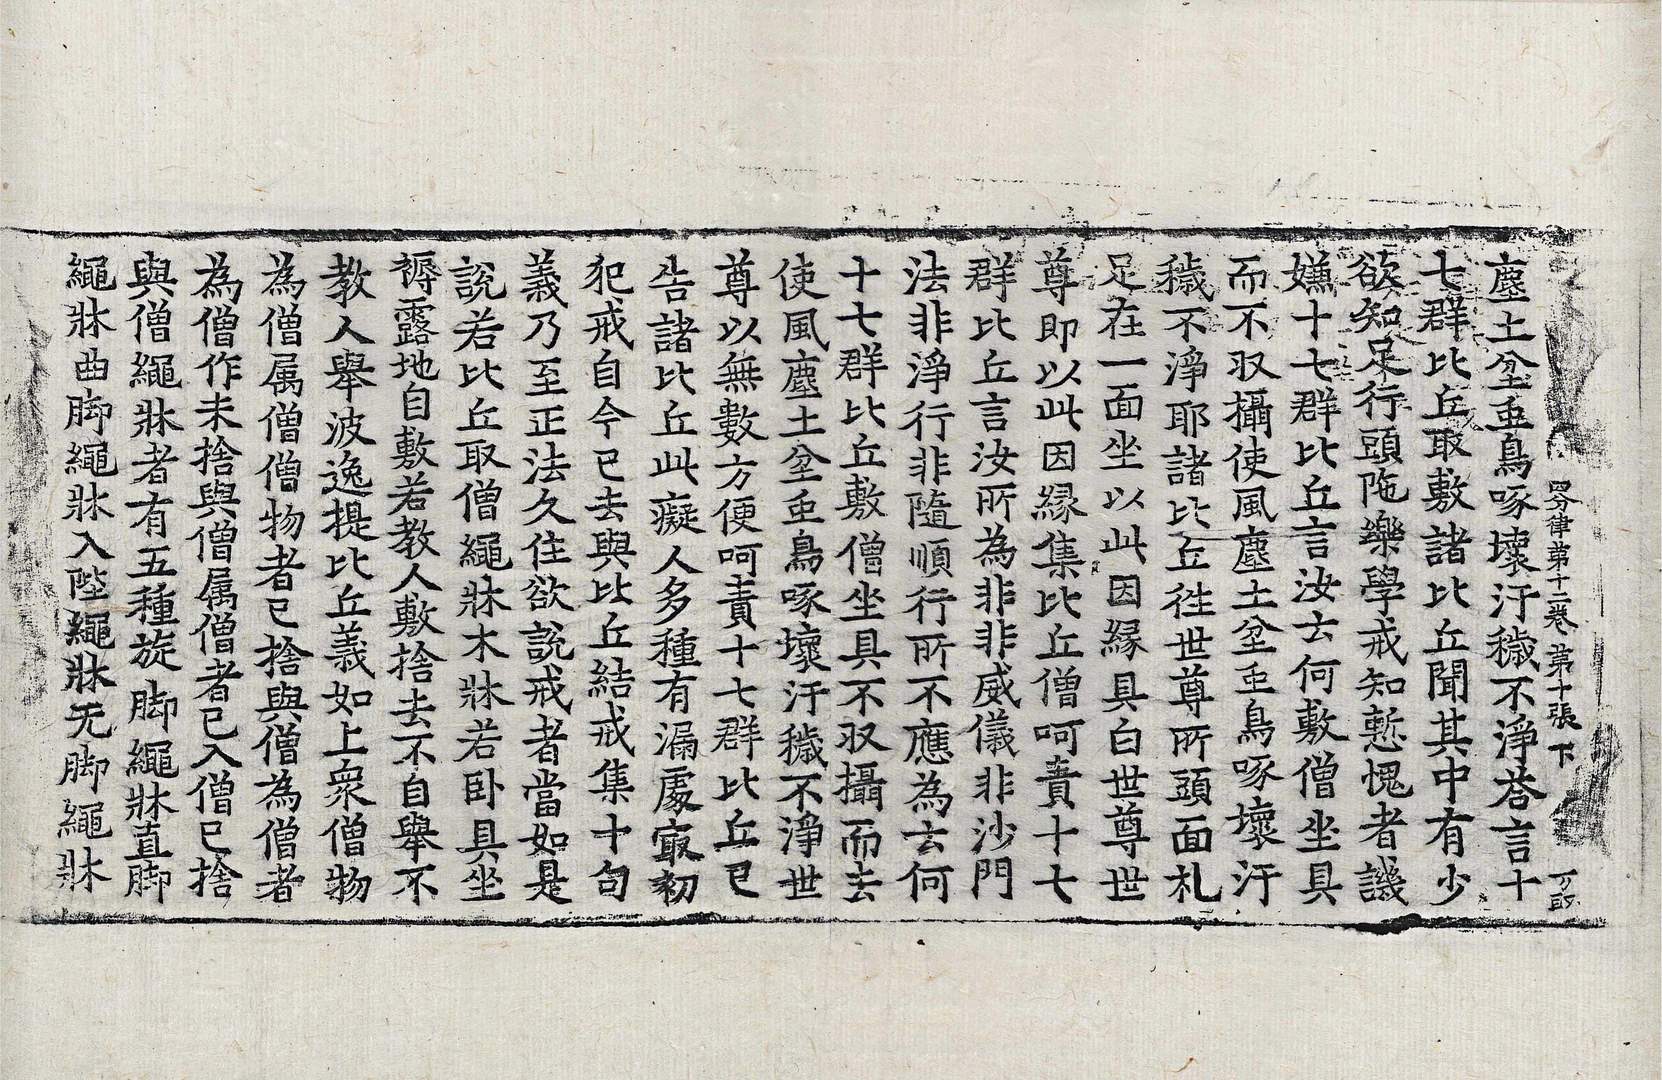 四分律第十二卷 第十張 下
塵土坌虫鳥啄壞汙穢不淨荅言十
七群比丘取敷諸比丘聞其中有少
欲知足行頭陁樂學戒知慙愧者譏
嫌十七群比丘言汝云何敷僧坐具
而不収攝使風塵土坌虫鳥啄壞汙
穢不淨耶諸比丘徃世尊所頭面礼
足在一面坐以此因縁具白世尊世
尊即以此因縁集比丘僧呵責十七
群比丘言汝所為非非威儀非沙門
法非淨行非隨順行所不應為云何
十七群比丘敷僧坐具不収攝而去
使風塵土坌虫鳥啄壞汙穢不淨世
尊以無數方便呵責十七群比丘已
告諸比丘此癡人多種有漏處㝡初
犯戒自今已去與比丘結戒集十句
義乃至正法久住欲說戒者當如是
說若比丘取僧繩牀木牀若卧具坐
褥露地自敷若教人敷捨去不自舉不
教人舉波逸提比丘義如上衆僧物
為僧属僧僧物者已捨與僧為僧者
為僧作未捨與僧属僧者已入僧已捨
與僧繩牀者有五種旋脚繩牀直脚
繩牀曲脚繩牀入陛繩牀无脚繩牀